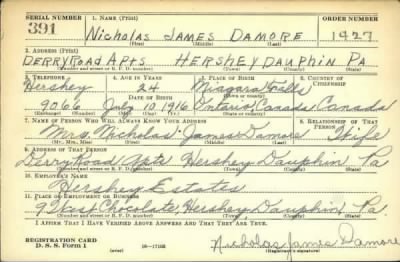 SERIAL NUMBER 1. NAME (Print) ORDER NUMBER
391 Nicholas James Damore 1427
(First) (Middle) (Last)
2. ADDRESS (Print)
Derry Road Apts Hershey Dauphin Pa
(Number and street or R. F. D. number) (Town) (County) (State)
3. TELEPHONE 4. AGE IN YEARS 5. PLACE OF BIRTH 6. COUNTRY OF CITIZENSHIP
Hershey 24 Niagara Falls
DATE OF BIRTH
9066 July 10 1916 Ontario, Canada Canada
7. NAME OF PERSON WHO WILL ALWAYS KNOW YOUR ADDRESS 8. RELATIONSHIP OF THAT PERSON
Mrs Nicholas James Damore Wife
(Mr., Mrs., Miss) (First) (Middle) (Last)
9. ADDRESS OF THAT PERSON
Derry Road Apts Hershey Dauphin Pa
(Number and street or R. F. D. number) (Town) (County) (State)
10. EMPLOYER'S NAME
Hershey Estates
11. PLACE OF EMPLOYMENT OR BUSINESS
9 West Chocolate, Hershey, Dauphin Pa.
(Number and street or R. F. D. number) (Town) (County) (State)
I AFFIRM THAT I HAVE VERIFIED ABOVE ANSWERS AND THAT THEY ARE TRUE.
REGISTRATION CARD
D. S. S. Form 1 Nicholas James Damore
(Registrant's signature)